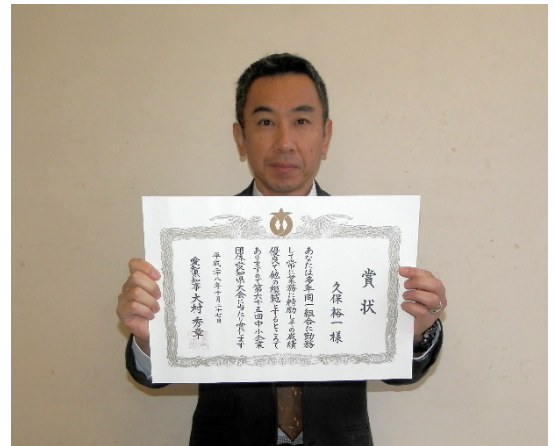 賞状
久保裕一 様
あなたは多年同一組合に勤務
して常に業務に精励しその成績
優良で他の模範とするところで
あります よって第六十五回中小企業
団体愛知県大会に当たり賞します
平成二十八年十月二十七日
愛知県知事 大村秀章